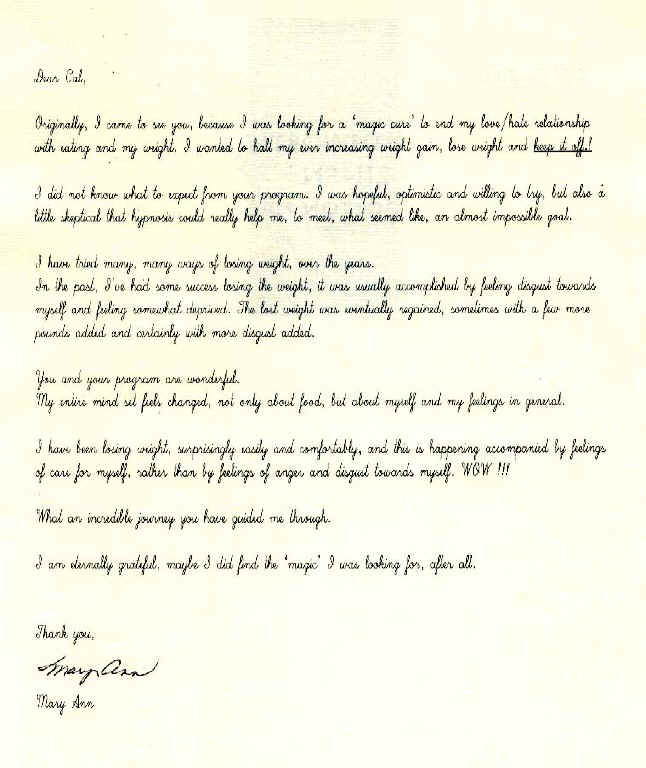 Dear Cal,
Originally, I came to see you, because I was looking for a "magic cure" to end my love/hate relationship
with eating and my weight. I wanted to halt my ever increasing weight gain, lose weight and keep it off!
I did not know what to expect from your program. I was hopeful, optimistic and willing to try, but also a
little skeptical that hypnosis could really help me, to meet, what seemed like, an almost impossible goal.
I have tried many, many ways of losing weight, over the years.
In the past, I've had some success losing the weight, it was usually accomplished by feeling disgust towards
myself and feeling somewhat deprived. The lost weight was eventually regained, sometimes with a few more
pounds added and certainly with more disgust added.
You and your program are wonderful.
My entire mind set feels changed, not only about food, but about myself and my feelings in general.
I have been losing weight, surprisingly easily and comfortably, and this is happening accompanied by feelings
of care for myself, rather than by feelings of anger and disgust towards myself. WOW !!!
What an incredible journey you have guided me through.
I am eternally grateful, maybe I did find the "magic" I was looking for, after all.
Thank you,
Mary Ann
Mary Ann